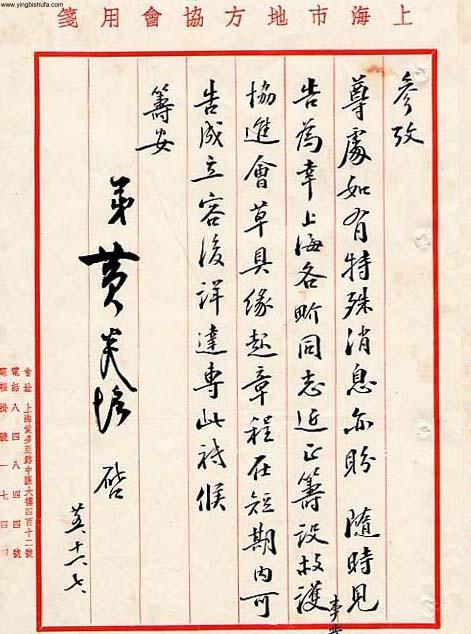 www.yingbishufa.com
上海市地方協會用箋
參攷
尊處如有特殊消息亦盼 隨時見
告為幸上海各畍同志近正籌設救護
協進會草具緣起章程在短期內可
告成立容後詳達專此祗候
籌安
弟黃炎培 啓
會址 上海愛多亞路中匯大樓四百十二號
電話 八四八四四號
電報掛號 一七四